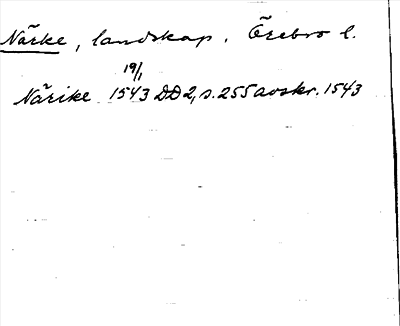 Närke, landskap. Örebro l.
19/1
Närike 1543 DD 2, s. 255 avskr. 1543